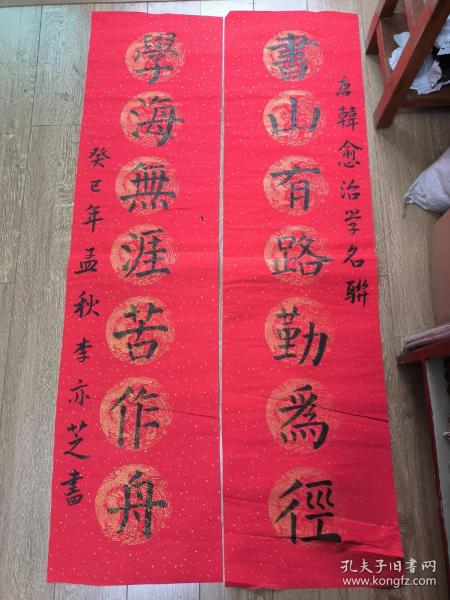 唐韓愈治学名聯
書山有路勤為徑
學海無涯苦作舟
癸巳年孟秋李亦芝書
孔夫子旧书网
www.kongfz.com